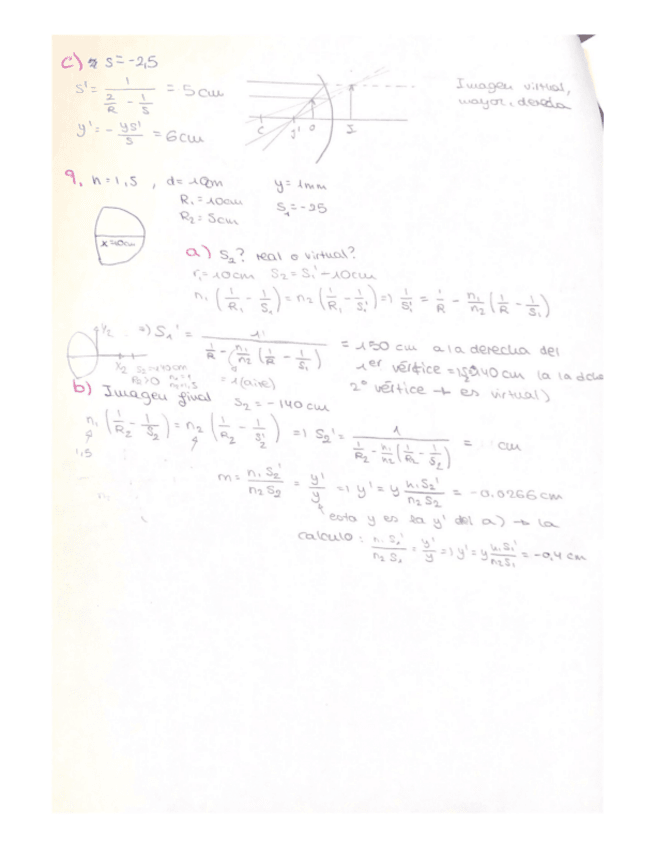 c) s = -2,5
s' = 1 / (2/R - 1/s) = 5 cm
Imagen virtual,
mayor, derecha
y' = - ys'/s = 6 cm
C f' O I
9. n = 1,5 , d = 10cm y = 1mm
R₁ = 10cm S₁ = -25
R₂ = 5cm
x = 10cm
a) S₂? real o virtual?
r₁ = 10cm S₂ = S₁' - 10cm
n₁ (1/R₁ - 1/S₁) = n₂ (1/R₁ - 1/S₁') => 1/S₁' = 1/R - n₁/n₂ (1/R - 1/S₁)
=> S₁' = 1 / (1/R - n₁/n₂ (1/R - 1/S₁)) = 150 cm a la derecha del
1er vértice = 140 cm (a la dcha
= 1 (aire)
2º vértice → es virtual)
b) Imagen final S₂ = -140 cm
n₁ (1/R₂ - 1/S₂) = n₂ (1/R₂ - 1/S₂') => S₂' = 1 / (1/R₂ - n₁/n₂ (1/R₂ - 1/S₂)) = cm
1,5
m = n₁S₂'/n₂S₂ = y'/y => y' = y n₁S₂'/n₂S₂ = -0.0266 cm
esta y es la y' del a) → la
calculo : n₁S₂'/n₂S₂ = y'/y => y' = y n₁S₁'/n₂S₁ = -0,4 cm